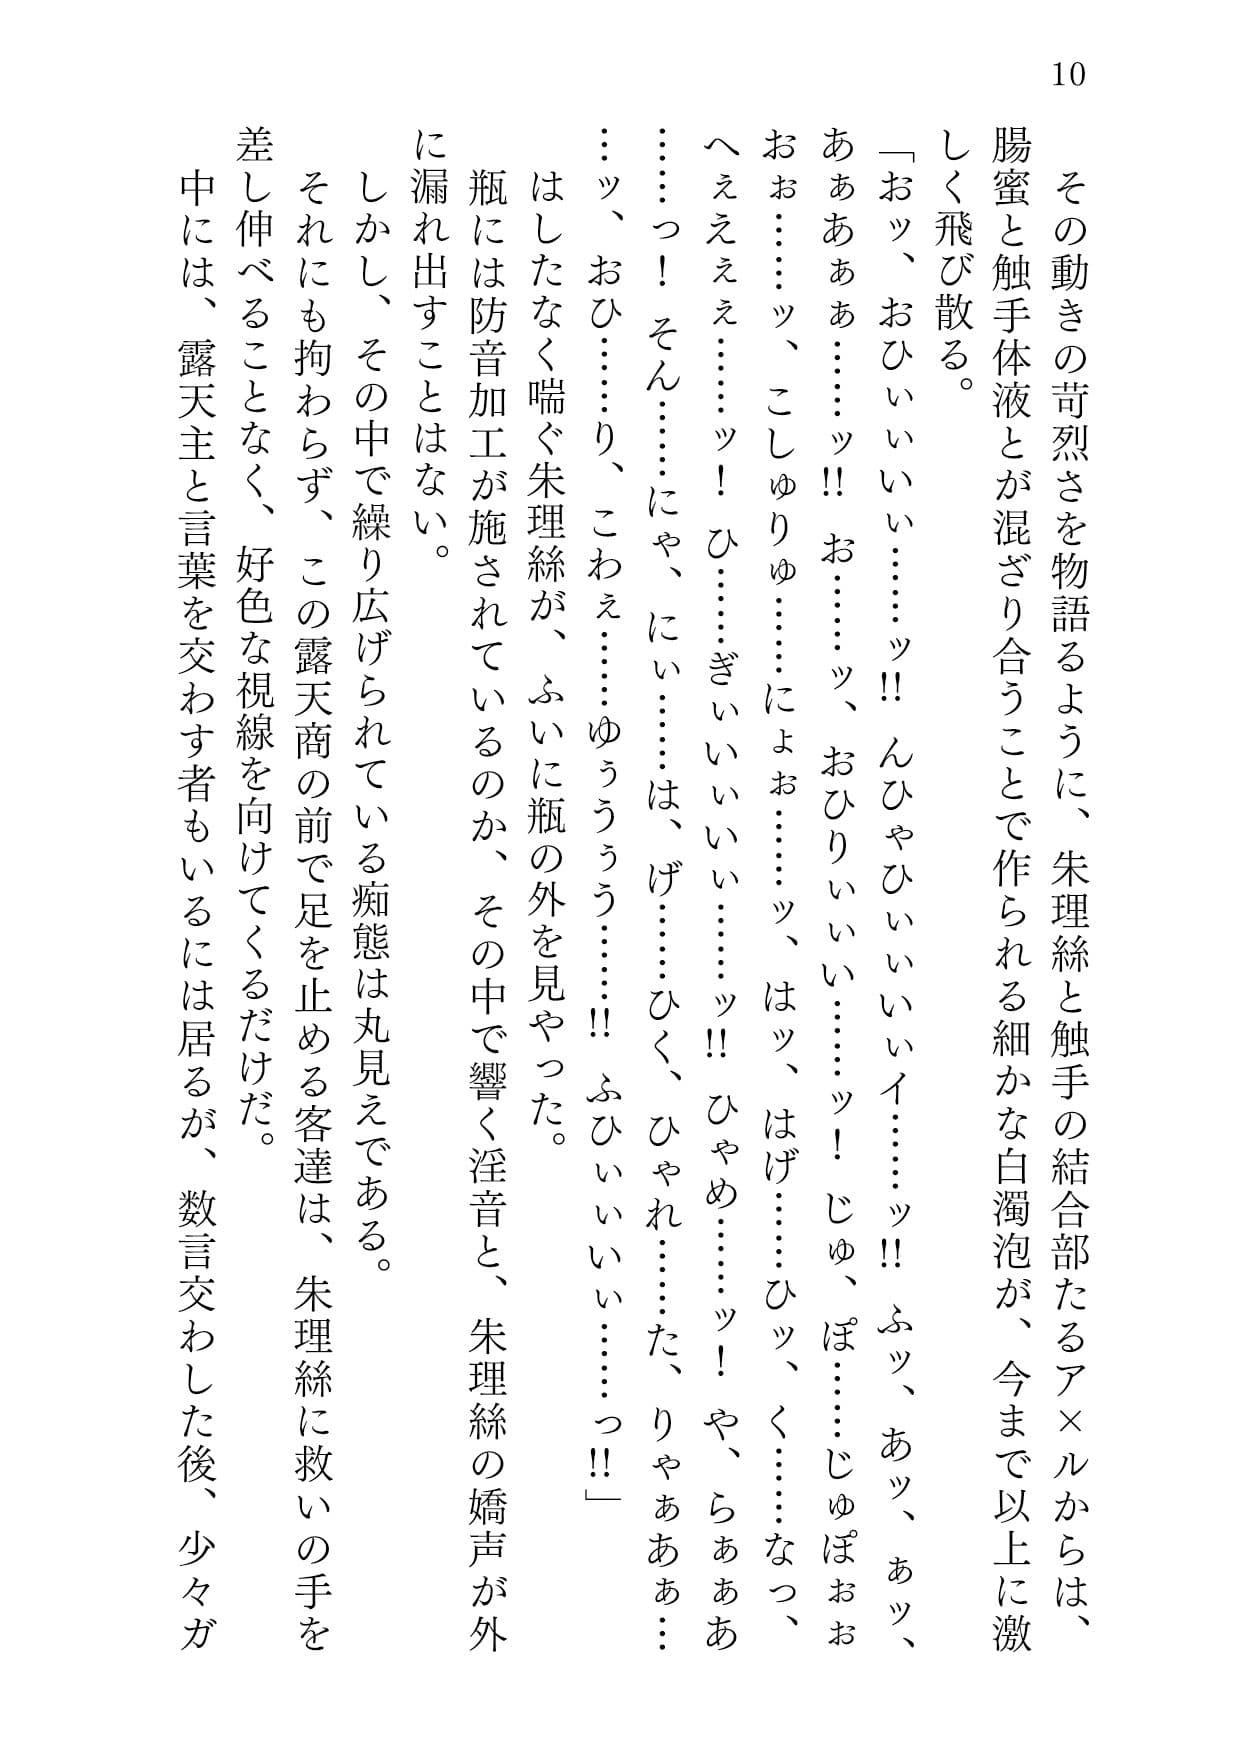 10
　その動きの苛烈さを物語るように、朱理絲と触手の結合部たるア×ルからは、
腸蜜と触手体液とが混ざり合うことで作られる細かな白濁泡が、今まで以上に激
しく飛び散る。
「おッ、おひぃぃいぃ……ッ!!　んひゃひぃぃいぃイ……ッ!!　ふッ、あッ、ぁッ、
あぁあぁぁ……ッ!!　お……ッ、おひりぃぃい……ッ！　じゅ、ぽ……じゅぽぉぉ
おぉ……ッ、こしゅりゅ……にょぉ……ッ、はッ、はげ……ひッ、く……なっ、
へぇええぇぇ……ッ！　ひ……ぎぃいぃいぃ……ッ!!　ひゃめ……ッ！　や、らぁぁあ
……っ！　そん……にゃ、にぃ……は、げ……ひく、ひゃれ……た、りゃぁあぁ…
…ッ、おひ……り、こわぇ……ゆぅうぅう……!!　ふひぃぃいぃ……っ!!」
　はしたなく喘ぐ朱理絲が、ふいに瓶の外を見やった。
　瓶には防音加工が施されているのか、その中で響く淫音と、朱理絲の嬌声が外
に漏れ出すことはない。
　しかし、その中で繰り広げられている痴態は丸見えである。
　それにも拘わらず、この露天商の前で足を止める客達は、朱理絲に救いの手を
差し伸べることなく、好色な視線を向けてくるだけだ。
　中には、露天主と言葉を交わす者もいるには居るが、数言交わした後、少々ガ